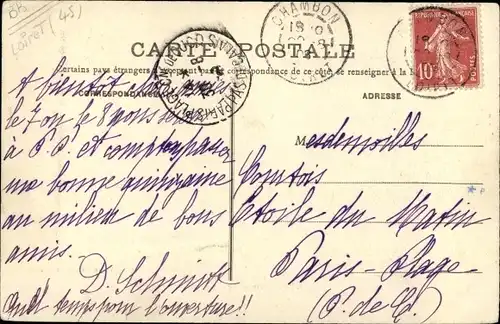 Loiret (45)
CARTE POSTALE
Certains pays étrangers n'acceptant pas de correspondance de ce côté, se renseigner à la
CORRESPONDANCE
ADRESSE
CHAMBON
18
REPUBLIQUE FRANCAISE
10c
PARIS-PLAGE PAS-DE-CALAIS
A bientôt
le 7 ou le 8 nous
à P.P. et comptons passer
une bonne quinzaine
au milieu de bons
amis.
D. Schmitt
Quel temps pour l'ouverture!!
Mesdemoiselles
Courtois
Etoile du Matin
Paris-Plage
(P. de C.)